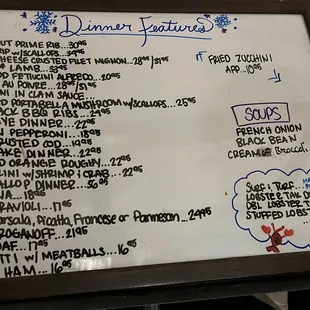 Dinner Features
UT PRIME RIB...30⁹⁵
W/SCALLOPS...34⁹⁵
CHEESE CRUSTED FILET MIGNON...28⁹⁵/31⁹⁵
& LAMB...33⁹⁵
FETTUCINI ALFREDO...20⁹⁵
AU POIVRE...28⁹⁵/31⁹⁵
INI IN CLAM SAUCE...
D PORTABELLA MUSHROOM W/SCALLOPS...25⁹⁵
ACK BBQ RIBS...24⁹⁵
YE DINNER...22⁹⁵
N PEPPERONI...18⁹⁵
RUSTED COD...19⁹⁵
AKE DINNER...22⁹⁵
D ORANGE ROUGHY...22⁹⁵
LINI W/SHRIMP & CRAB...22⁹⁵
ALLOP DINNER...36⁹⁵
NA...18⁹⁵
RAVIOLI...17⁹⁵
arsala, Picatta, Francese or Parmesan...24⁹⁵
ROGANOFF...21⁹⁵
OAF...17⁹⁵
TTI W/ MEATBALLS...16⁹⁵
HAM...16⁹⁵
FRIED ZUCCHINI
APP...10⁹⁵
SOUPS
FRENCH ONION
BLACK BEAN
CREAM OF Broccoli
Surf & Turf
LOBSTER TAIL D
DBL LOBSTER T
STUFFED LOBS